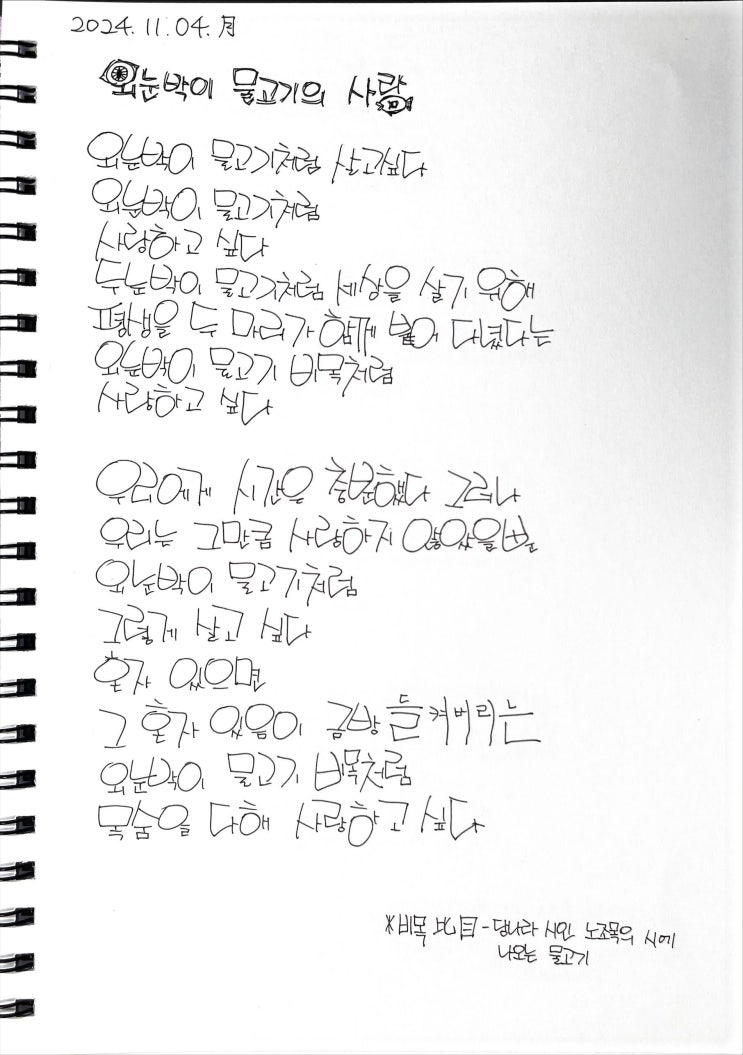 2024.11.04.月
외눈박이 물고기의 사랑
외눈박이 물고기처럼 살고싶다
외눈박이 물고기처럼
사랑하고 싶다
두눈박이 물고기처럼 세상을 살기 위해
평생을 두 마리가 함께 붙어 다녔다는
외눈박이 물고기 비목처럼
사랑하고 싶다
우리에게 시간은 충분했다 그러나
우리는 그만큼 사랑하지 않았을 뿐
외눈박이 물고기처럼
그렇게 살고 싶다
혼자 있으면
그 혼자 있음이 금방 들켜버리는
외눈박이 물고기 비목처럼
목숨을 다해 사랑하고 싶다
*비목 比目 - 당나라 시인 노조목의 시에
나오는 물고기